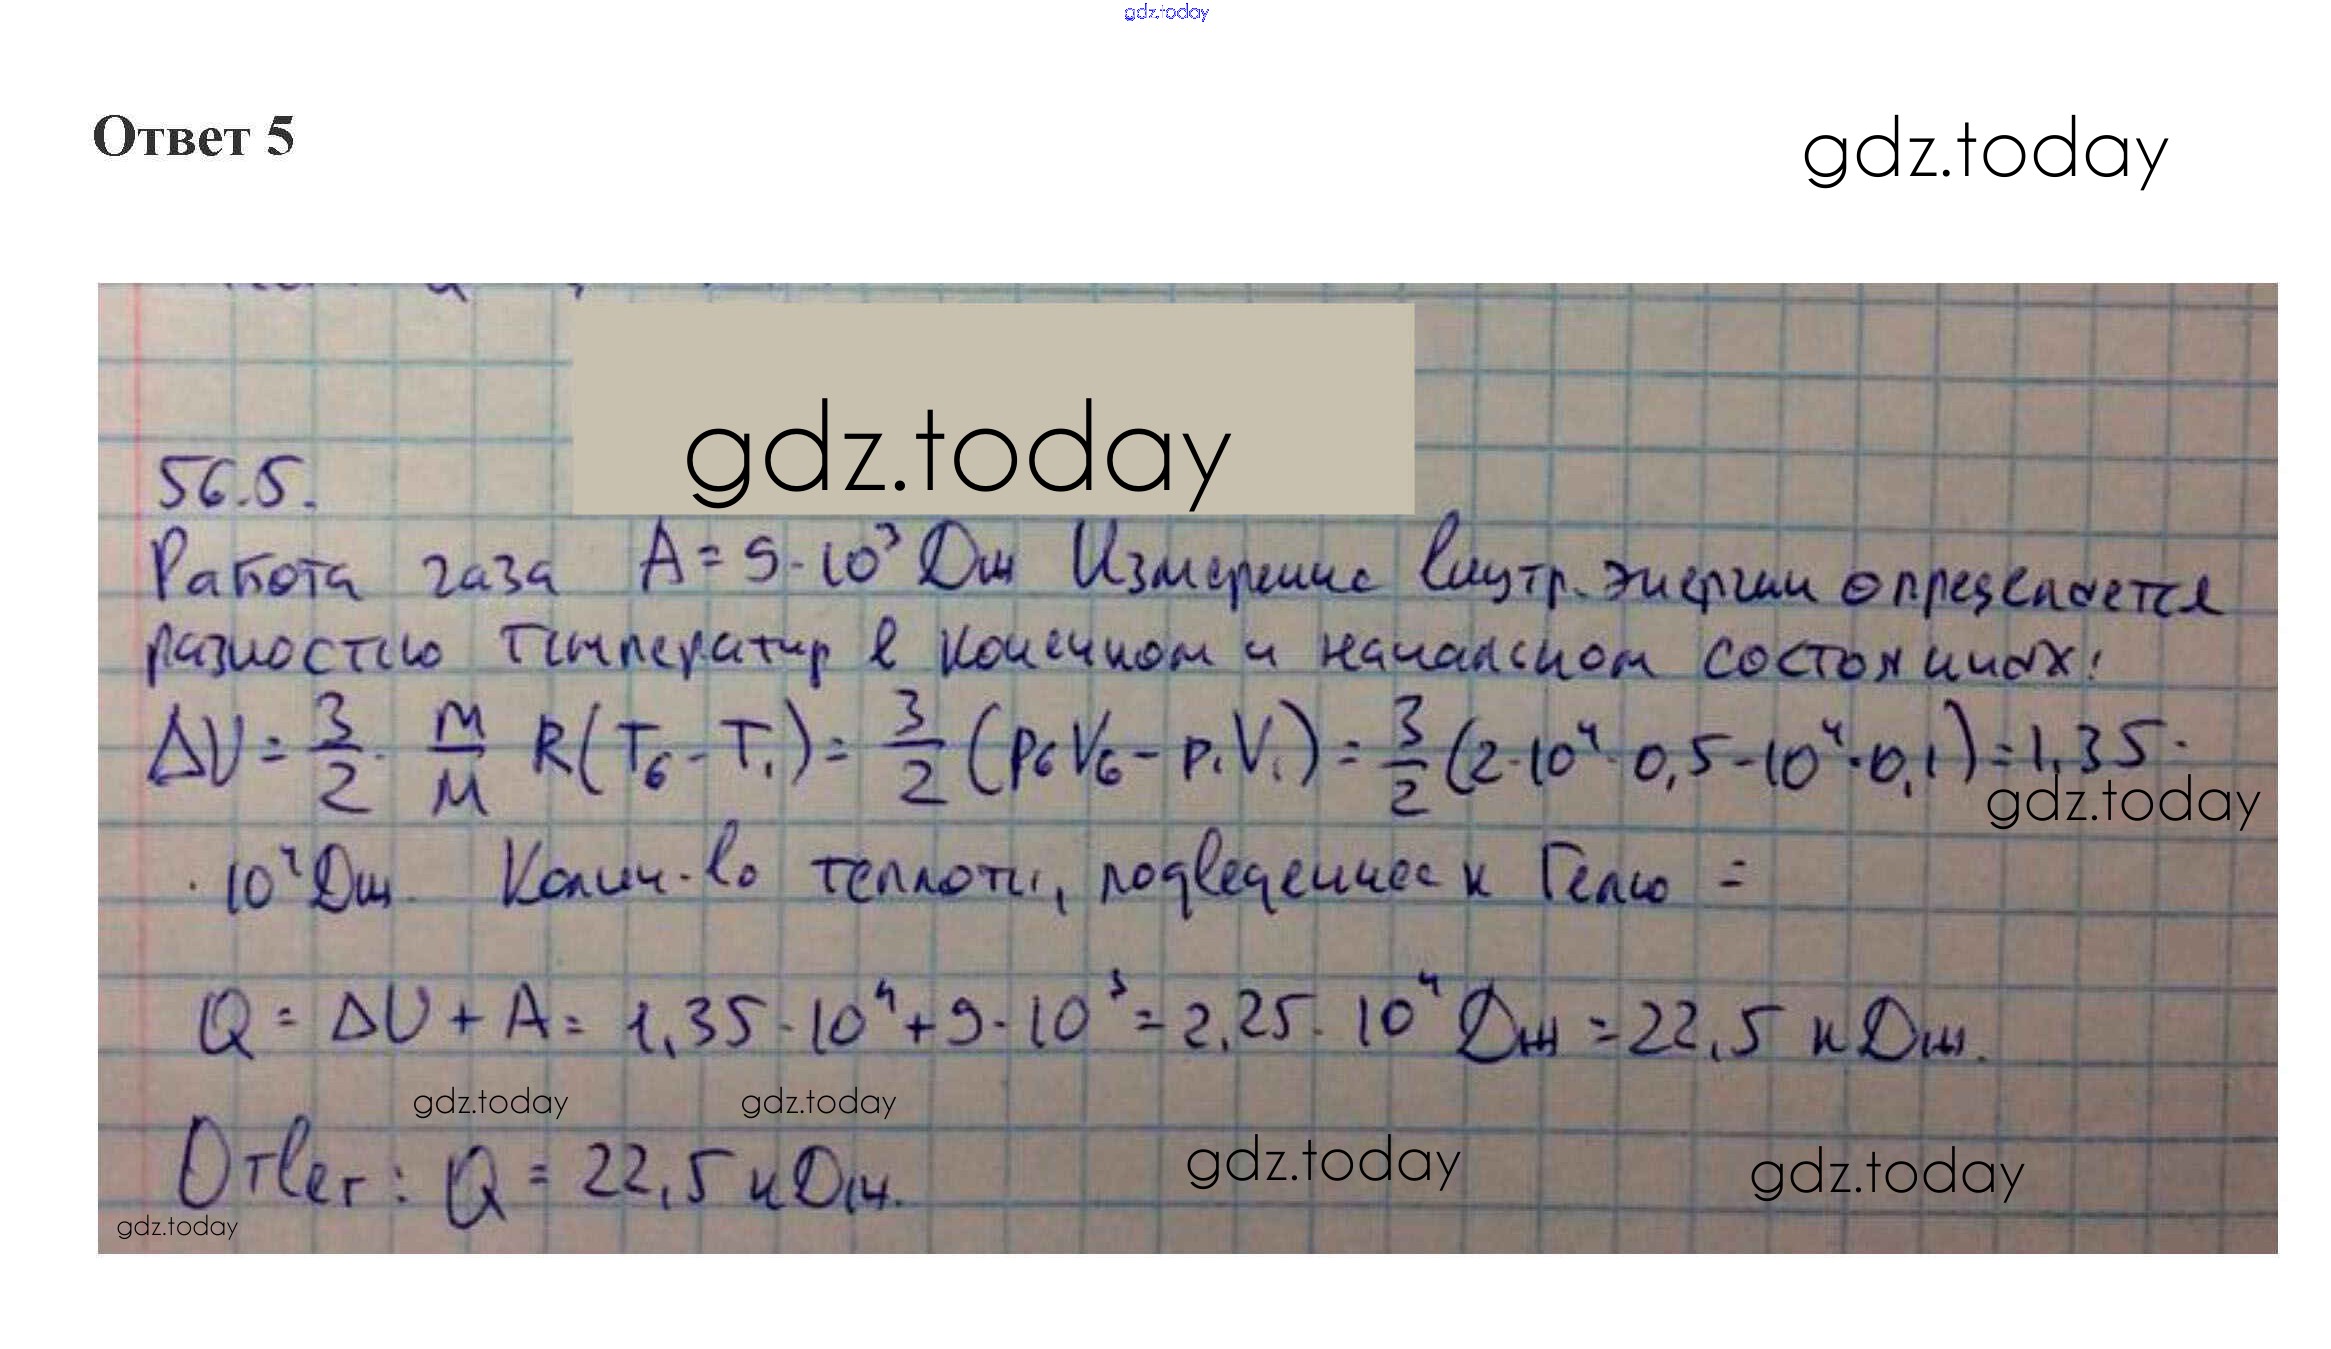 gdz.today
Ответ 5
gdz.today
gdz.today
56.5.
Работа газа A = 9·10³ Дж Измерение внутр. энергии определяется
разностью температур в конечном и начальном состояниях:
ΔU = 3/2 · m/M R(T₆ - T₁) = 3/2 (p₆V₆ - p₁V₁) = 3/2 (2·10⁴·0,5 - 10⁴·0,1) = 1,35·
gdz.today
·10⁴ Дж. Колич-во теплоты, подведенное к Гелию =
Q = ΔU + A = 1,35·10⁴ + 9·10³ = 2,25·10⁴ Дж = 22,5 кДж.
gdz.today gdz.today
Ответ: Q = 22,5 кДж.
gdz.today gdz.today
gdz.today